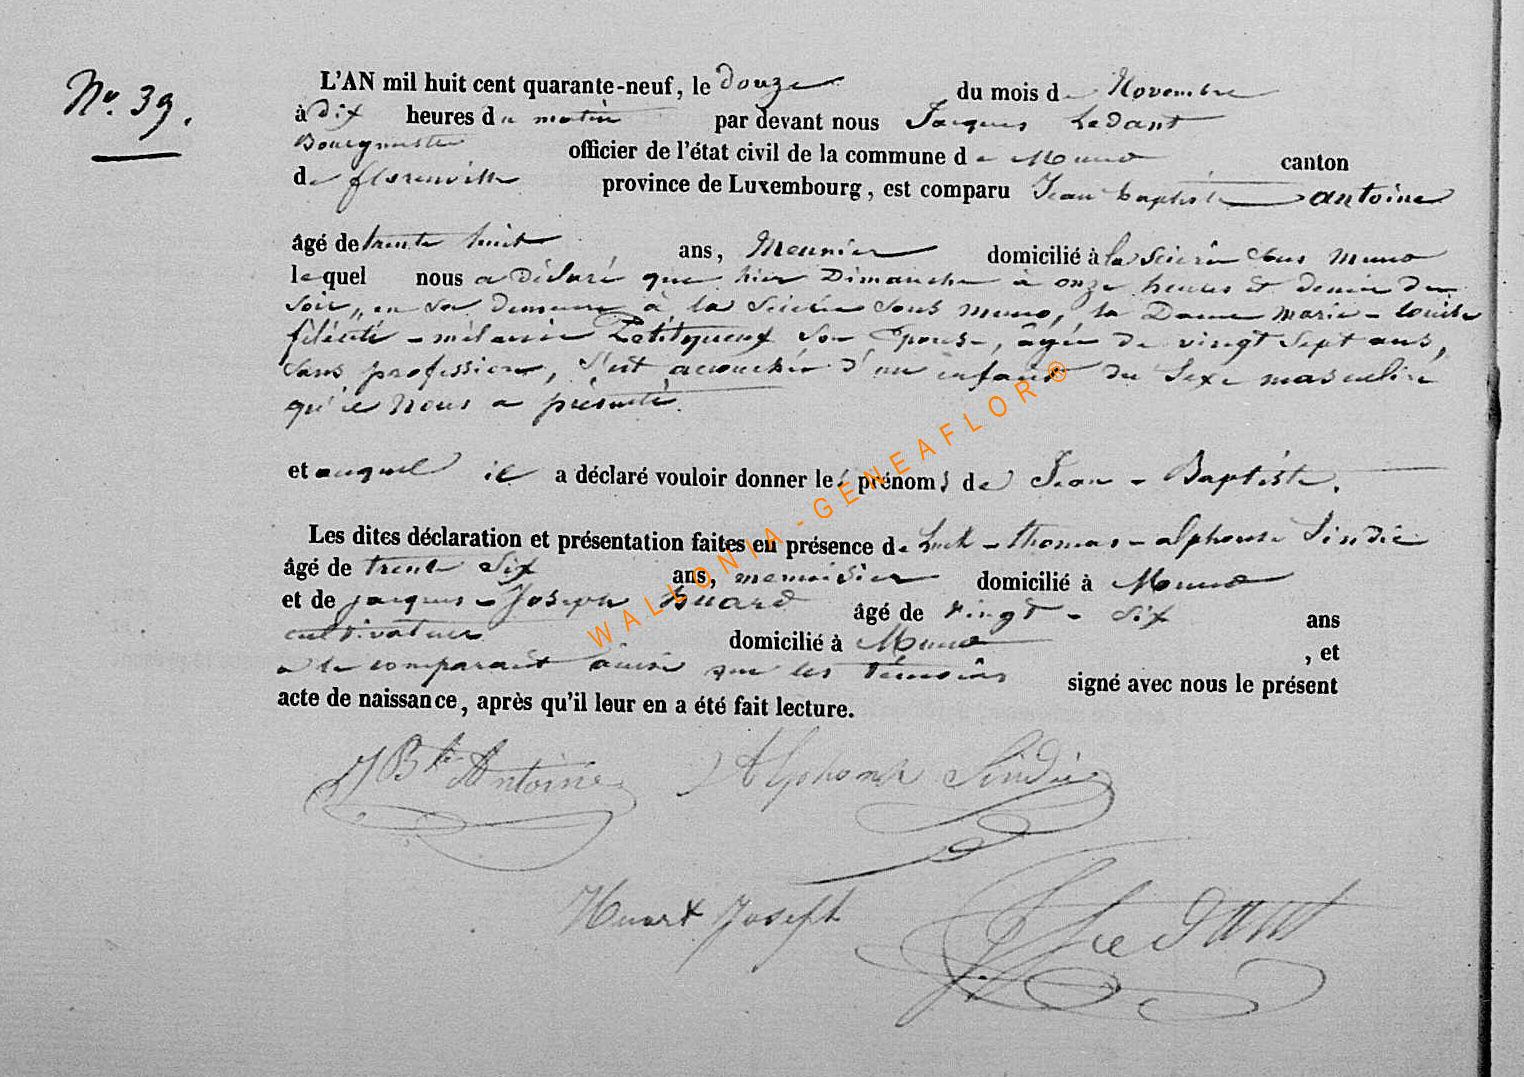 No. 39.
L'AN mil huit cent quarante-neuf, le douze du mois de Novembre
à dix heures du matin par devant nous Jacques Ledant
Bourgmestre officier de l'état civil de la commune de Muno canton
de florenville province de Luxembourg, est comparu Jean baptiste antoine
âgé de trente huit ans, Meunier domicilié à la Scierie sous muno
lequel nous a Déclaré que hier Dimanche à onze heures et demie du
soir, en sa demeure à la Scierie sous muno, la Dame marie-louise
félicité-mélanie Petitqueux Son Epouse, âgée de vingt Sept ans,
sans profession, S'est accouchée d'un enfant du Sexe masculin
qu'il nous a présenté.
et auquel il a déclaré vouloir donner les prénoms de Jean-Baptiste.
Les dites déclaration et présentation faites en présence de Luck-thomas-alphonse Sindic
âgé de trente Six ans, menuisier domicilié à Muno
et de jacques-Joseph Huard âgé de vingt-six ans
cultivateur domicilié à Muno, et
a le comparant ainsi que les témoins signé avec nous le présent
acte de naissance, après qu'il leur en a été fait lecture.
J Bte Antoine Alphonse Sindic
Huart Joseph
J Ledant
WALLONIA-GENEAFLOR ®